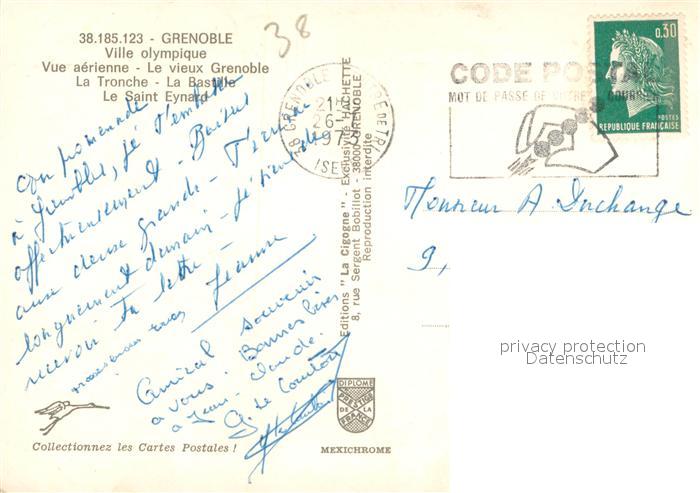 38
38.185.123 - GRENOBLE
Ville olympique
Vue aérienne - Le vieux Grenoble
La Tronche - La Bastille
Le Saint Eynard
En promenade
à Grenoble, je t'embrasse
affectueusement - Baisers
aux deux grands -
longuement demain - Je viens de
recevoir ta lettre -
Jeanne
Amical souvenir
à vous. Bonnes bises
à Jean-Claude.
G. Le Couloïc
Editions "La Cigogne" - Exclusivité HACHETTE
8, rue Sergent Bobillot - 38000 GRENOBLE
Reproduction interdite
38 GRENOBLE
21H
26-
1973
ISERE
CODE POSTAL
MOT DE PASSE DE VOTRE COURRIER
0,30
POSTES
REPUBLIQUE FRANÇAISE
Monsieur A Duchange
9,
privacy protection
Datenschutz
DIPLOME
PRESTIGE
DE LA
FRANCE
Collectionnez les Cartes Postales !
MEXICHROME